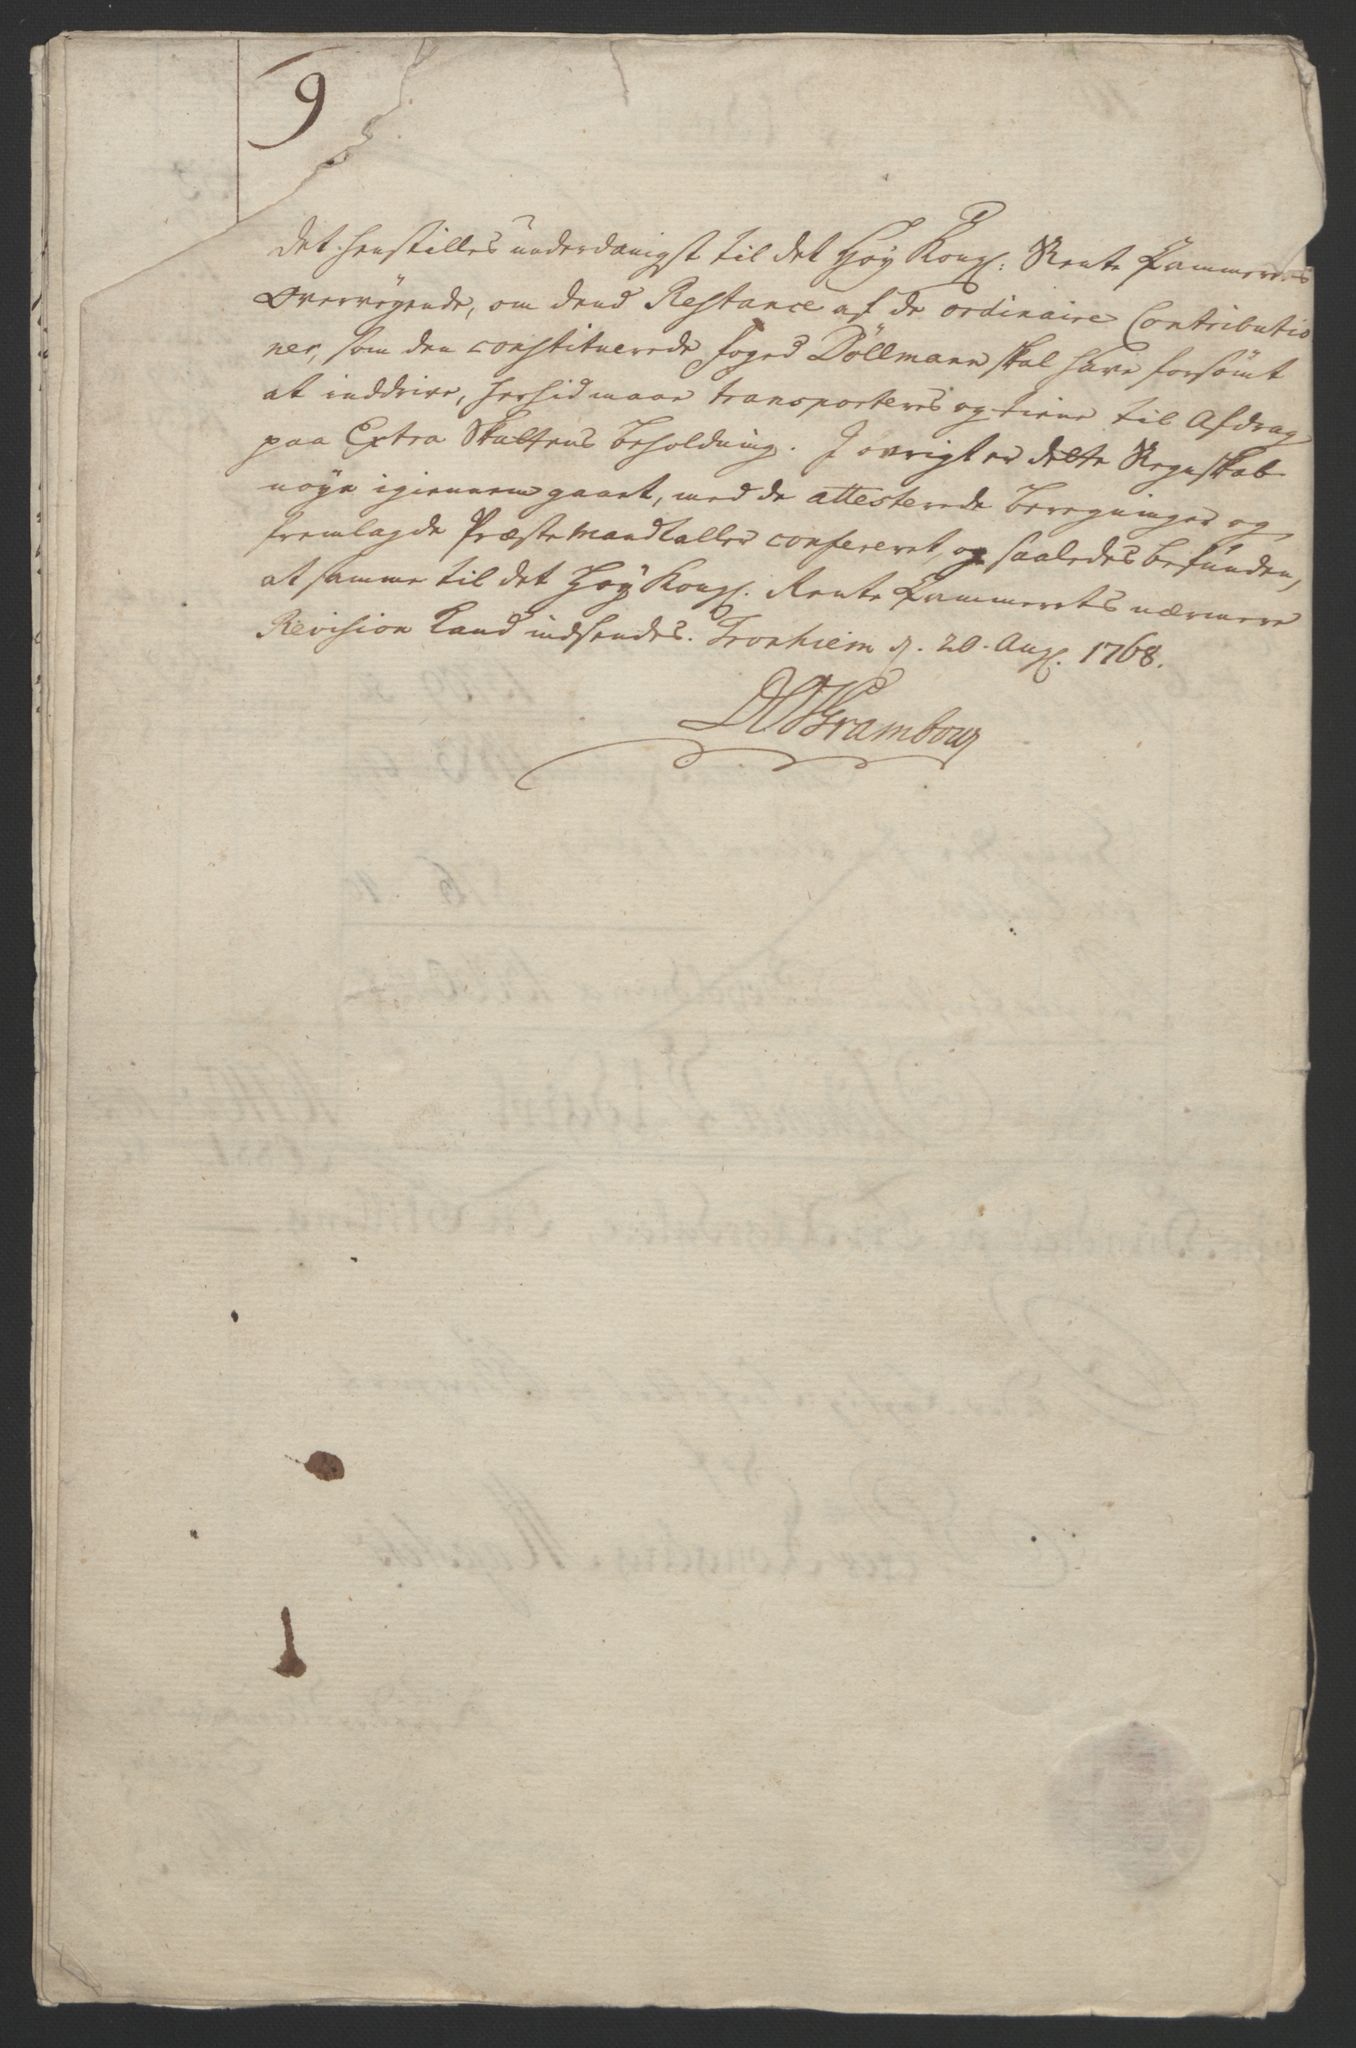 9
Det henstilles underdanigst til det Høy Kongl: Rente Kammerets
Overveyende, om dend Restance af de ordinaire Contributio
ner, som den constituerede foged Döllmann skal have forsømt
at inddrive, herhid maae transporteres og tiene til Afdrag
paa Extra Skattens beholdning. I øvrigt er dette Regnskab
nøye igiennem gaaet, med de attesterede beregninger og
fremlagde Præste Mandtaller confereret, og saaledes befunden,
at samme til det Høy Kongl. Rente Kammerets nærmere
Revision kand indsendes. Tronhiem d. 20. Aug. 1768.